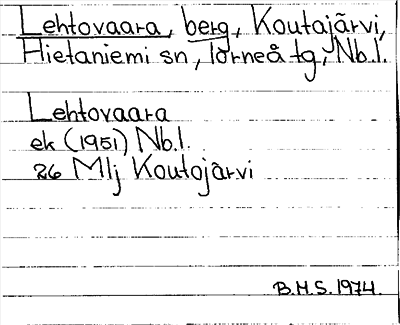 Lehtovaara, berg, Koutajärvi,
Hietaniemi sn, Torneå tg, Nb.l.
Lehtovaara
ek (1951) Nb.l.
26 Mlj Koutojärvi
B.M.S. 1974.